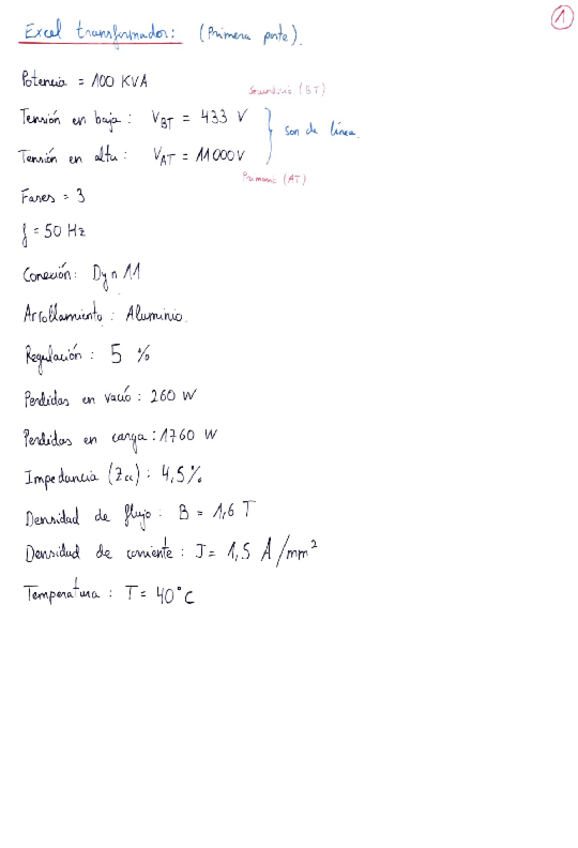 1
Excel transformador: (Primera parte).
Potencia = 100 KVA
Secundario (BT)
Tensión en baja: V_BT = 433 V
son de línea.
Tensión en alta: V_AT = 11000 V
Primario (AT)
Fases = 3
f = 50 Hz
Conexión: Dyn 11
Arrollamiento: Aluminio.
Regulación: 5 %
Perdidas en vació: 260 W
Perdidas en carga: 1760 W
Impedancia (Zcc): 4,5%
Densidad de flujo: B = 1,6 T
Densidad de corriente: J = 1,5 A/mm²
Temperatura: T = 40°C